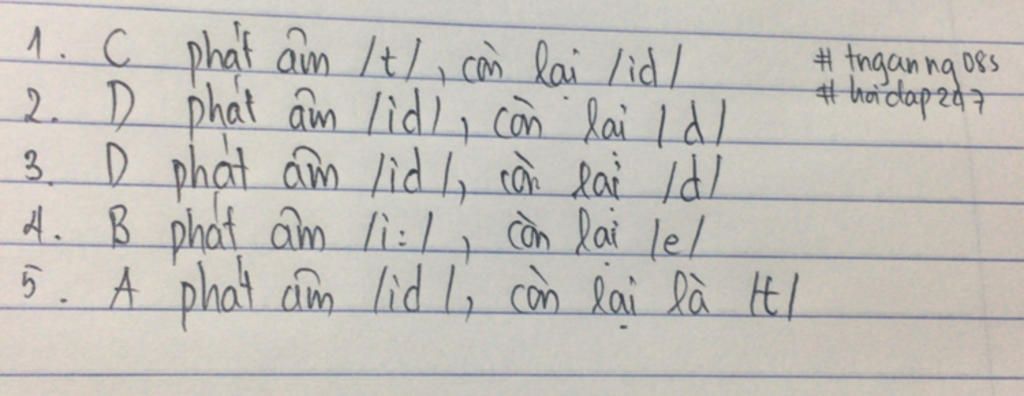 1. C phát âm /t/, còn lại /id/
# tnganng08s
# hoidap247
2. D phát âm /id/, còn lại /d/
3. D phát âm /id/, còn lại /d/
4. B phát âm /i:/, còn lại /e/
5. A phát âm /id/, còn lại là /t/